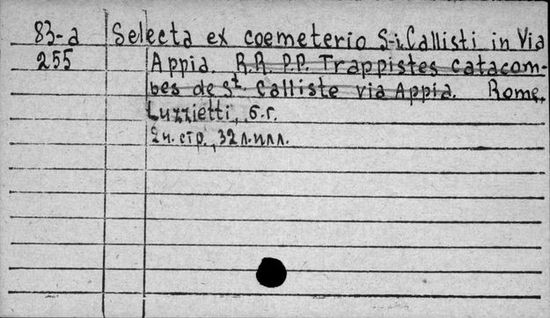 83-a Selecta ex coemeterio S-i Callisti in Via
255 Appia. R.R. P.P. Trappistes catacom-
bes de St. Calliste via Appia. Rome,
Luzzietti, б.г.
2 н. стр., 32 л. илл.